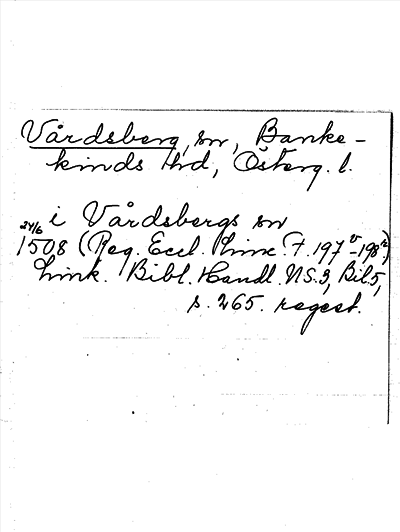 Vårdsberg, sn, Banke-
kinds hd, Österg. l.
24/6 i Vårdsbergs sn
1508 (Reg. Eccl. Linc. F. 197v-198r,
Link. Bibl. Handl. NS.3, Bil.5,
s. 265. regest.